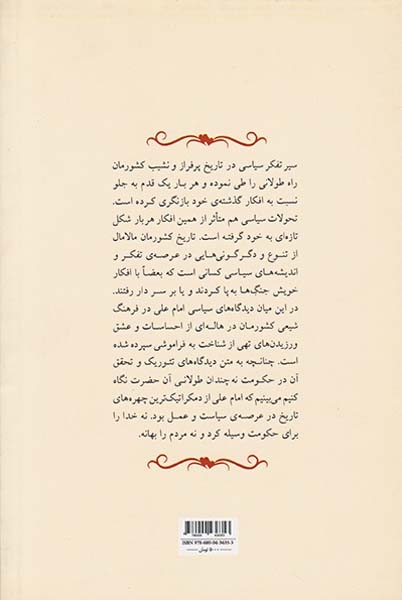 سیر تفکر سیاسی در تاریخ پرفراز و نشیب کشورمان
راه طولانی را طی نموده و هر بار یک قدم به جلو
نسبت به افکار گذشته‌ی خود بازنگری کرده است.
تحولات سیاسی هم متأثر از همین افکار هربار شکل
تازه‌ای به خود گرفته است. تاریخ کشورمان مالامال
از تنوع و دگرگونی‌هایی در عرصه‌ی تفکر و
اندیشه‌های سیاسی کسانی است که بعضاً با افکار
خویش جنگ‌ها به پا کردند و یا بر سر دار رفتند.
در این میان دیدگاه‌های سیاسی امام علی در فرهنگ
شیعی کشورمان در هاله‌ای از احساسات و عشق
ورزیدن‌های تهی از شناخت به فراموشی سپرده شده
است. چنانچه به متن دیدگاه‌های تئوریک و تحقق
آن در حکومت نه چندان طولانی آن حضرت نگاه
کنیم می‌بینیم که امام علی از دمکراتیک‌ترین چهره‌های
تاریخ در عرصه‌ی سیاست و عمل بود. نه خدا را
برای حکومت وسیله کرد و نه مردم را بهانه.
تومان